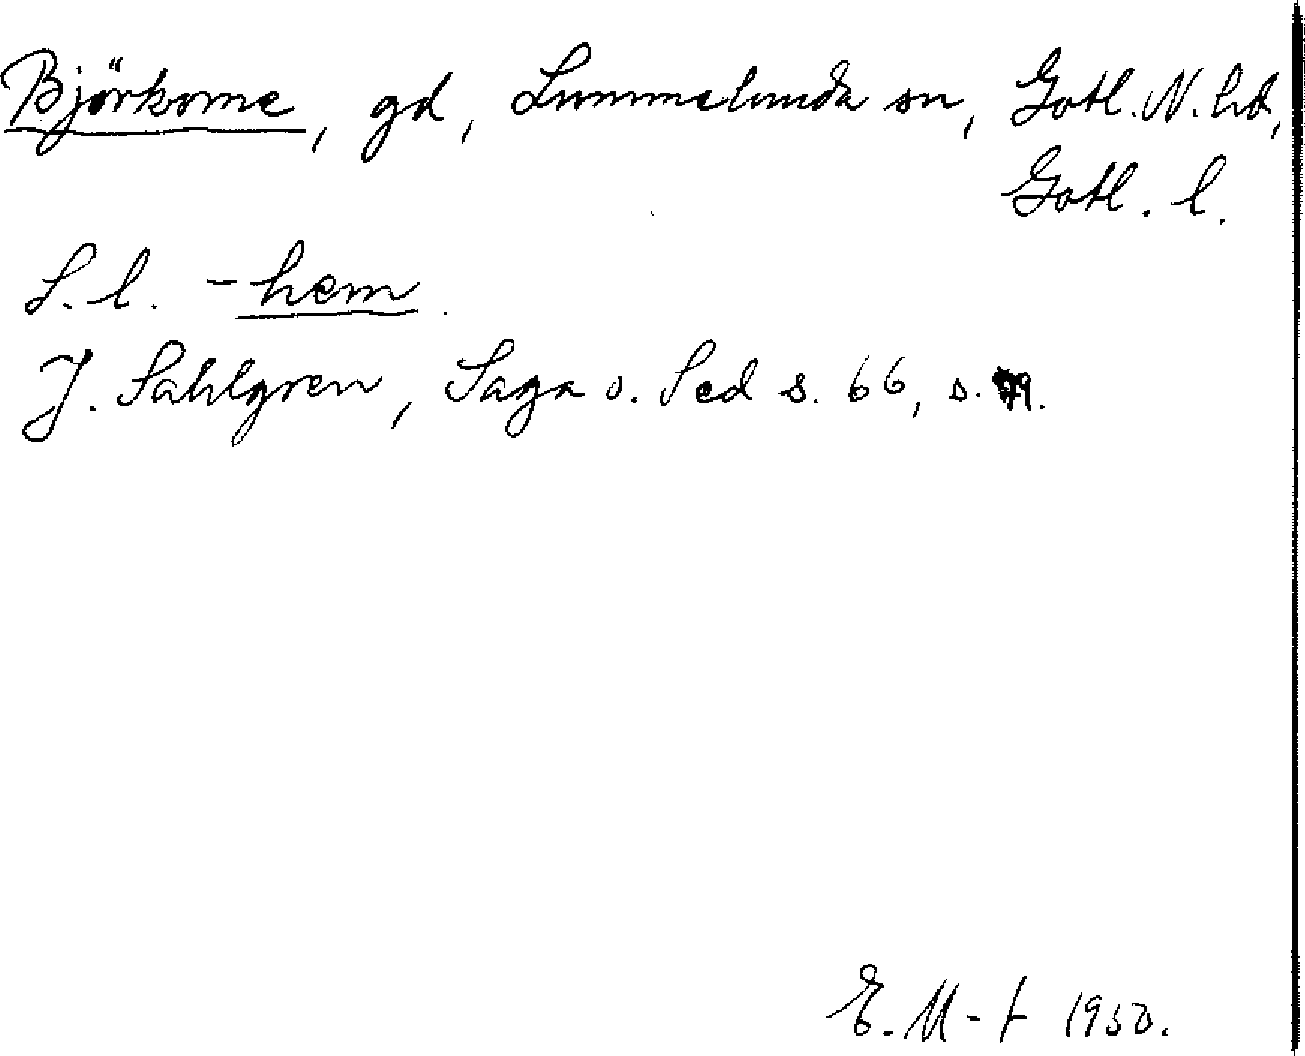 Björkome, gd, Lummelunda sn, Gotl. N. hd,
Gotl. l.
S. l. -hem.
J. Sahlgren, Saga o. Sed s. 66, s. 79.
E. M-t 1950.